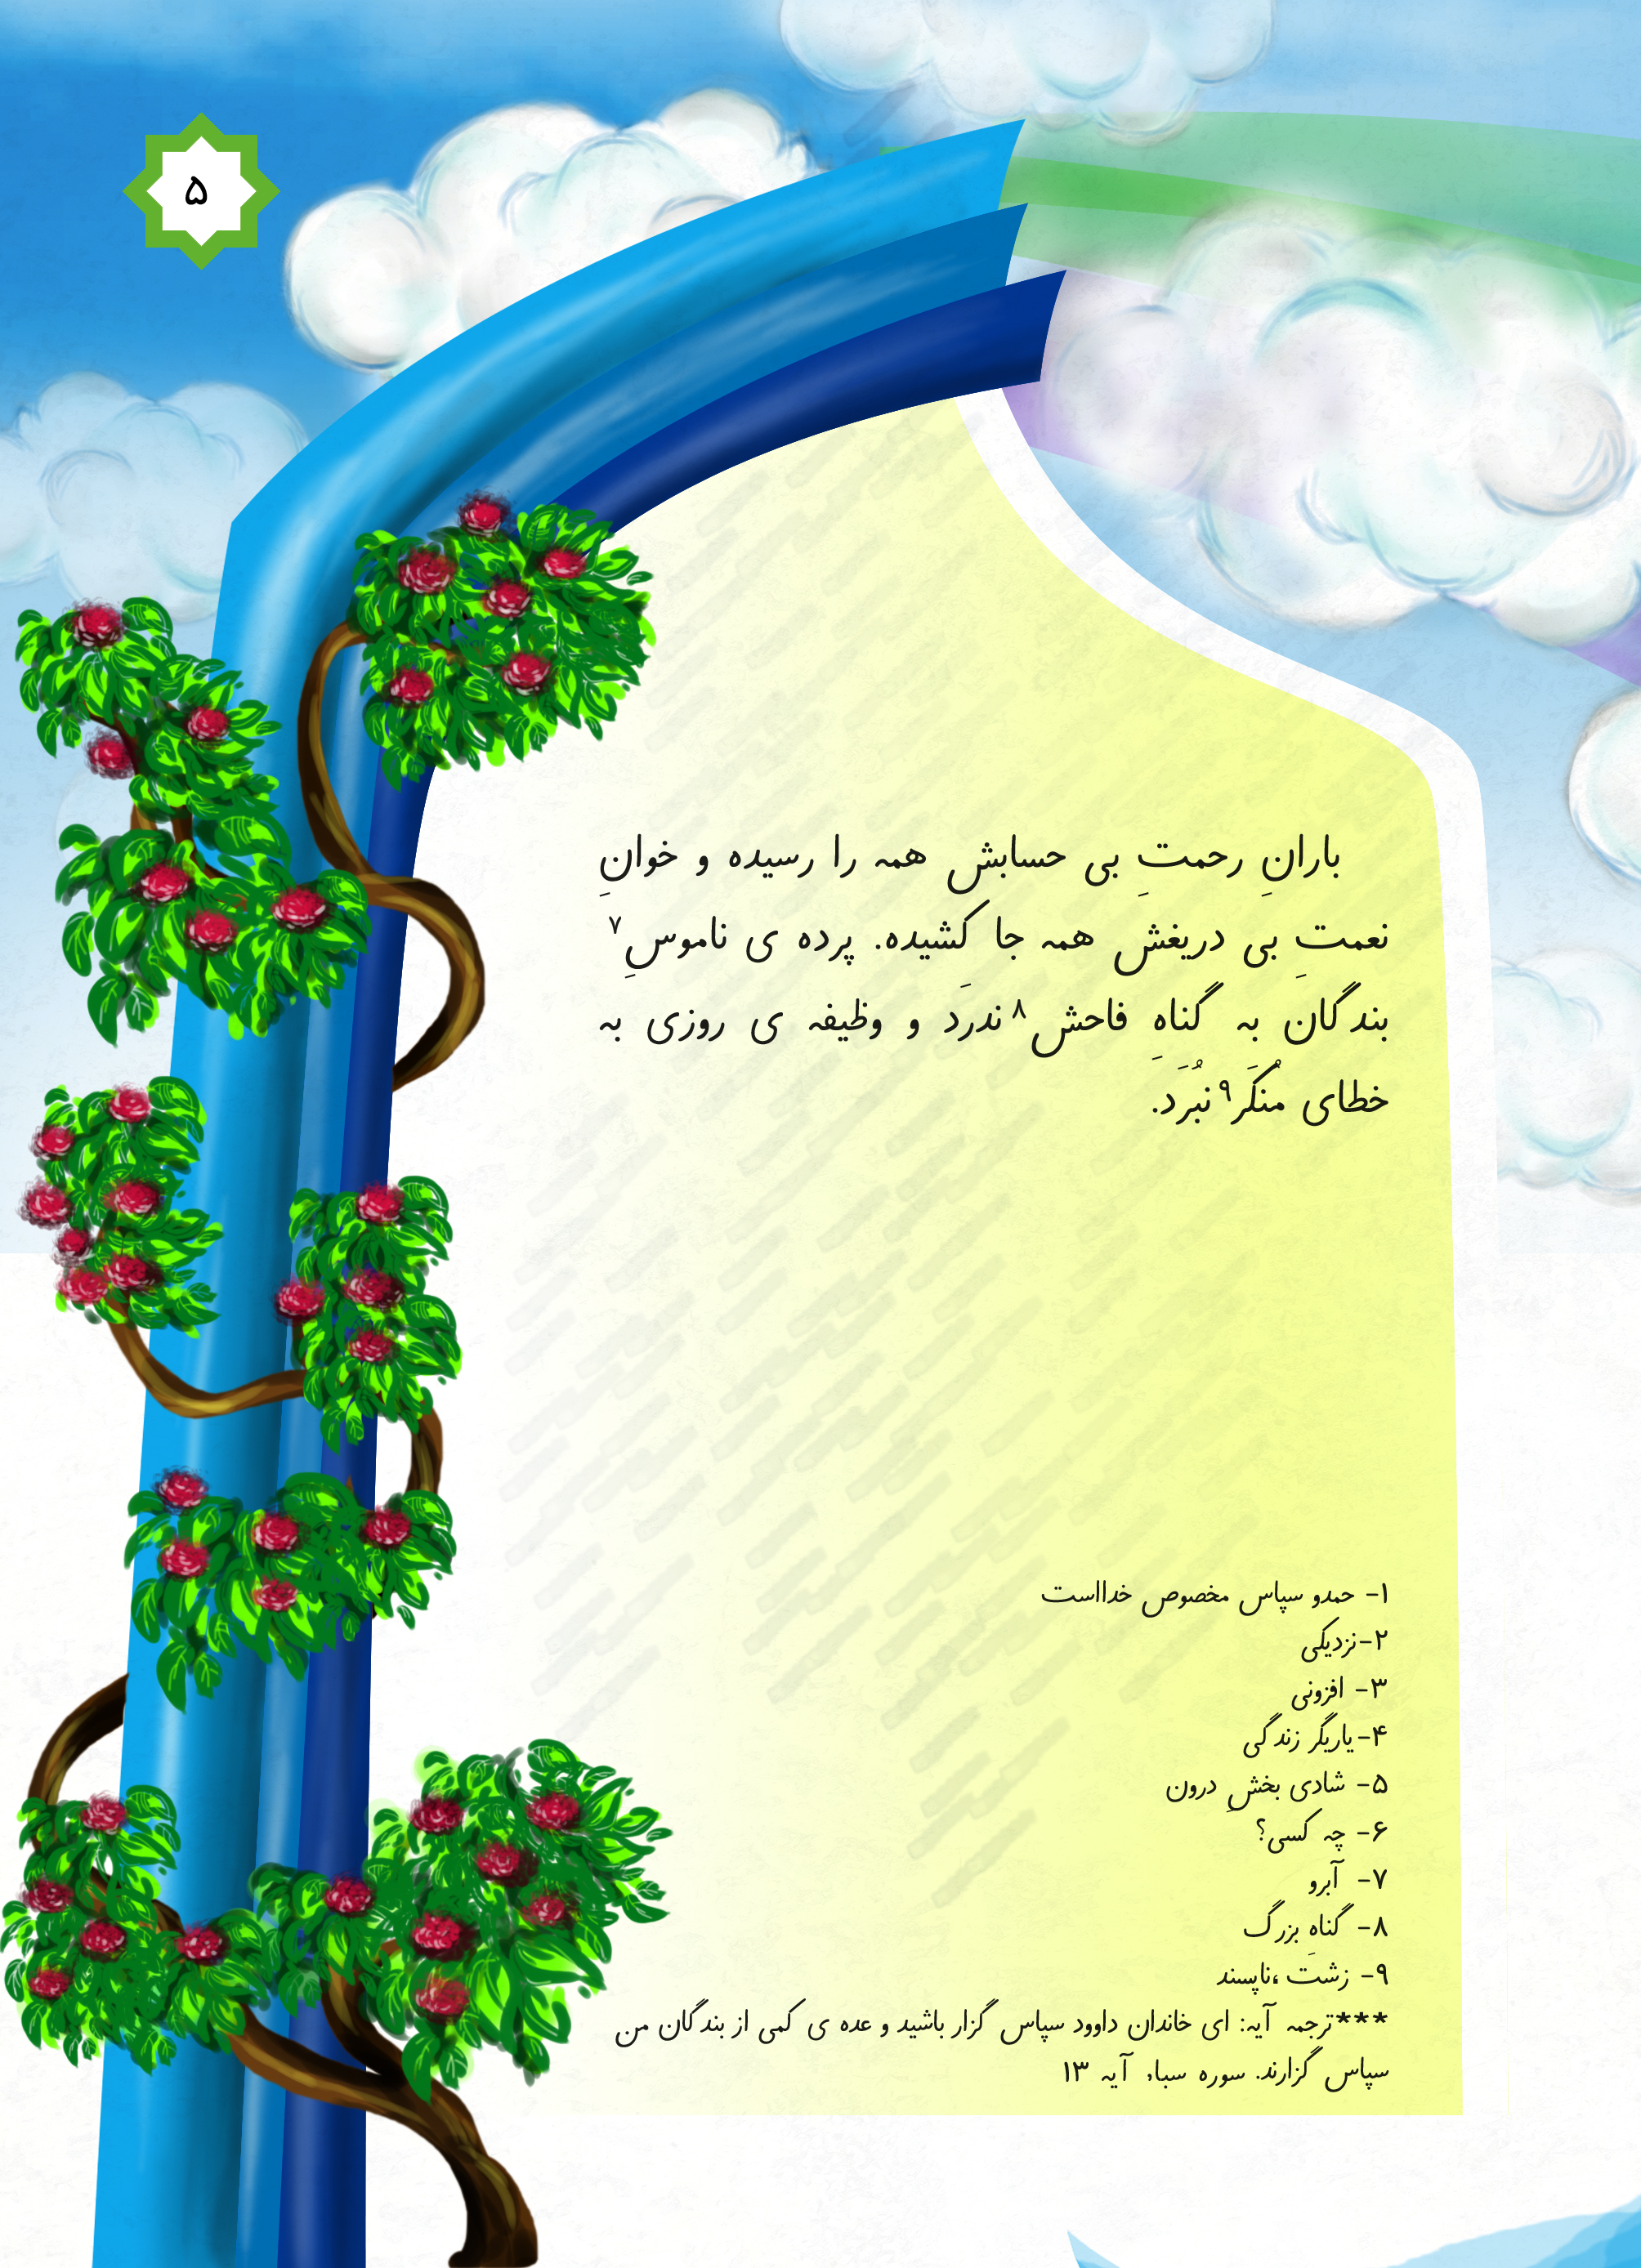 ۵
بارانِ رحمتِ بی حسابش همه را رسیده و خوانِ
نعمتِ بی دریغش همه جا کشیده. پرده ی ناموسِ۷
بندگان به گناهِ فاحش۸ ندرَد و وظیفه ی روزی به
خطای مُنکَر۹ نبُرَد.
۱- حمدو سپاس مخصوص خدااست
۲-نزدیکی
۳- افزونی
۴-یاریگر زندگی
۵- شادی بخشِ درون
۶- چه کسی؟
۷- آبرو
۸- گناه بزرگ
۹- زشت ،ناپسند
***ترجمه آیه: ای خاندان داوود سپاس گزار باشید و عده ی کمی از بندگان من
سپاس گزارند. سوره سبا, آیه ۱۳